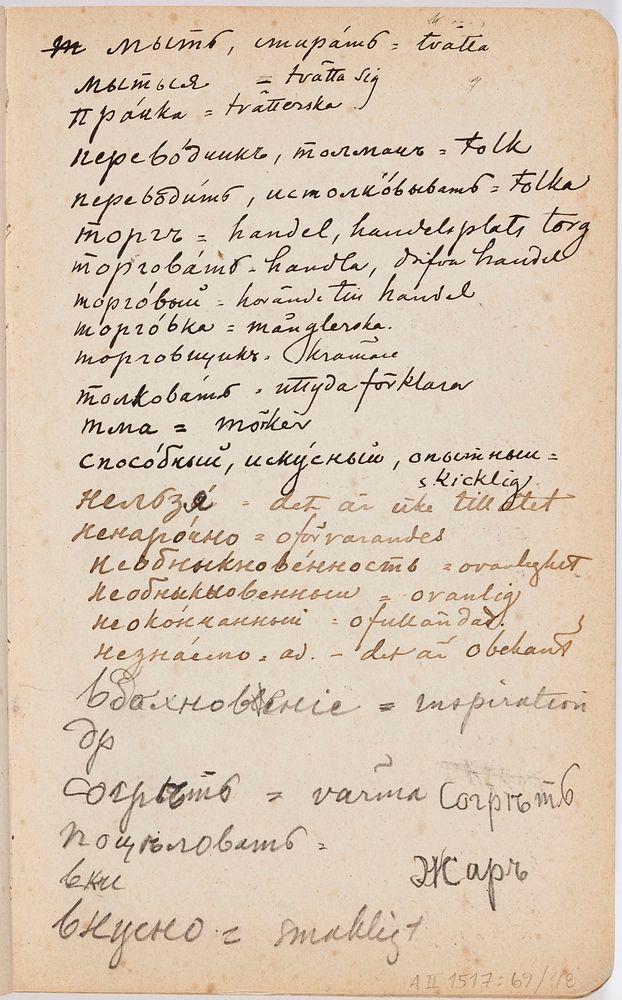 мыть, стирáть = tvätta
мыться = tvätta sig
прáчка = tvätterska
перевóдчикъ, толмачъ = tolk
переводи́ть, истолкóвывать = tolka
торгъ = handel, handelsplats torg
торговáть = handla, drifva handel
торгóвый = hörande till handel
торгóвка = månglerska.
торговщикъ = krämare
толковáть = uttyda förklara
тма = mörker
спосóбный, искýсный, опытный =
skicklig
нельзя́ = det är icke tillåtet
ненарóчно = oförvarandes
необныкновéнность = ovanlighet
необныкновенный = ovanlig
неокóнчанный = ofulländad.
незнáемо = ad. - det är obekant
вдохновеніе = inspiration
др
согрѣть = värma Согрѣть
поцѣловать =
вки
Жаръ
вкусно = smakligt
A II 1517:69/48